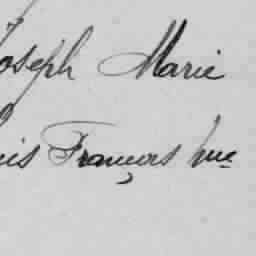 Joseph Marie
is François